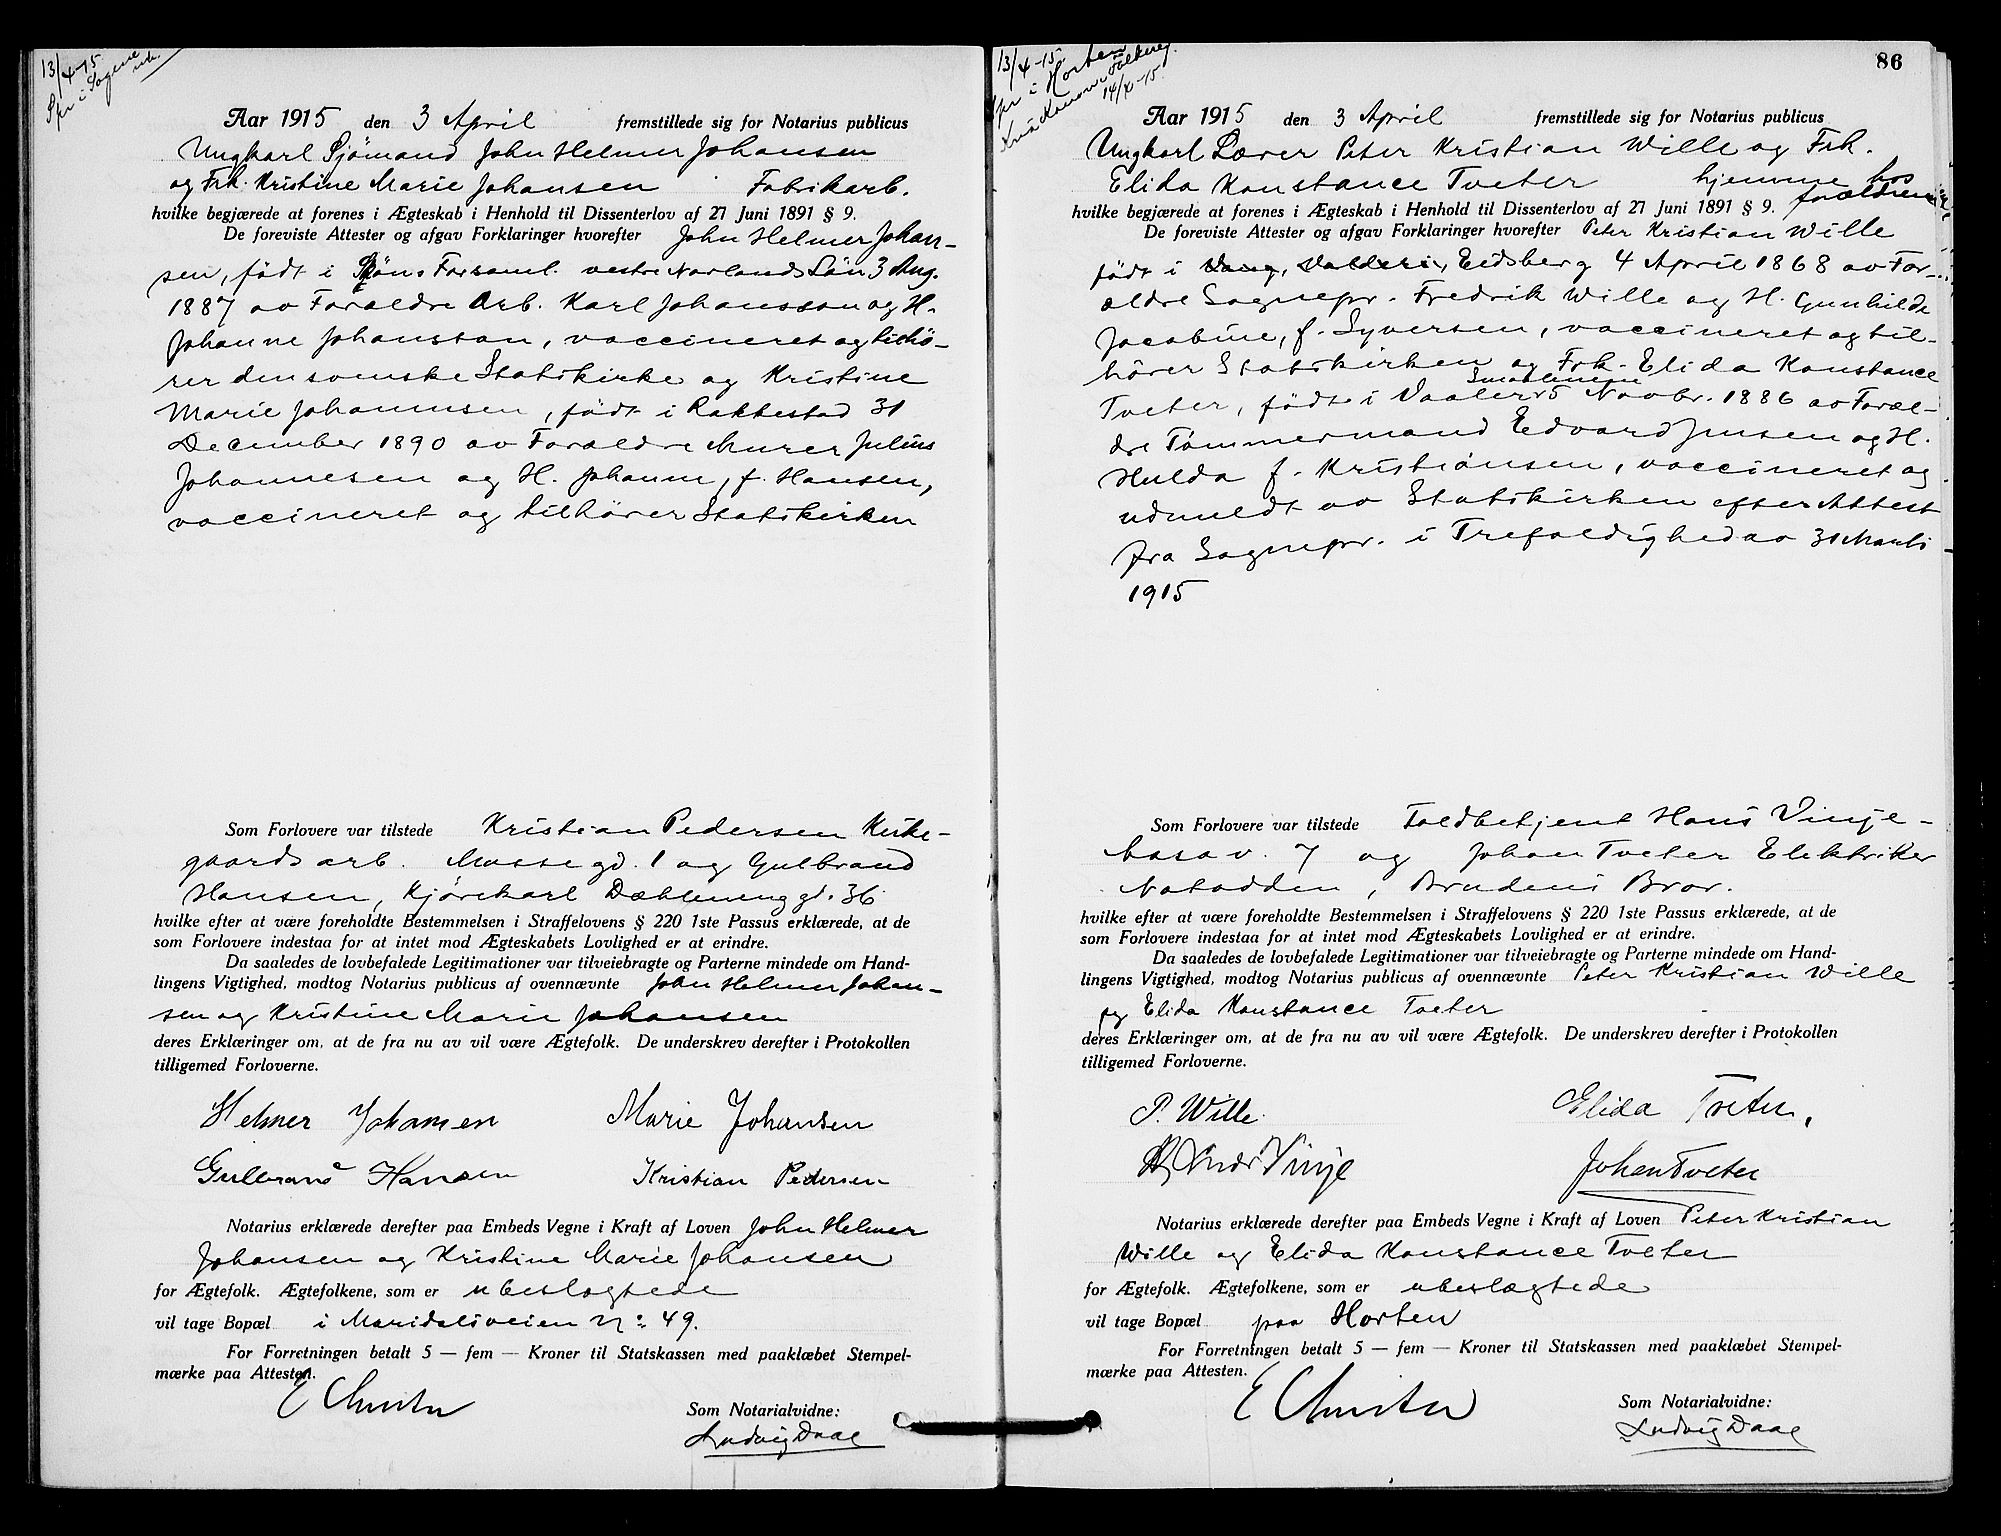 13/4-15
Spr i Sogne
Aar 1915 den 3 April fremstillede sig for Notarius publicus
Ungkarl Sjömand John Helmer Johansen
og Frk. Kristine Marie Johansen Fabrikarb.
hvilke begjærede at forenes i Ægteskab i Henhold til Dissenterlov af 27 Juni 1891 § 9.
De foreviste Attester og afgav Forklaringer hvorefter John Helmer Johan-
sen, födt i Forsaml. vestre Norlands Län 3 Aug.
1887 av Forældre Arb. Karl Johansson og H.
Johanne Johansson, vaccineret og tilhö-
rer den svenske Statskirke og Kristine
Marie Johannsen, födt i Rakkestad 31
December 1890 av Forældre Murer Julius
Johannesen og H. Johanne, f. Hansen,
vaccineret og tilhörer Statskirken
Som Forlovere var tilstede Kristian Pedersen Kirke-
gaards arb. Mosse gd. 1 og Gulbrand
Hansen, Kjörekarl Dæhleneng gd. 36
hvilke efter at være foreholdte Bestemmelsen i Straffelovens § 220 1ste Passus erklærede, at de
som Forlovere indestaa for at intet mod Ægteskabets Lovlighed er at erindre.
Da saaledes de lovbefalede Legitimationer var tilveiebragte og Parterne mindede om Hand-
lingens Vigtighed, modtog Notarius publicus af ovennævnte John Helmer Johan-
sen og Kristine Marie Johansen
deres Erklæringer om, at de fra nu av vil være Ægtefolk. De underskrev derefter i Protokollen
tilligemed Forloverne.
Helmer Johansen Marie Johansen
Gulbrand Hansen Kristian Pedersen
Notarius erklærede derefter paa Embeds Vegne i Kraft af Loven John Helmer
Johansen og Kristine Marie Johansen
for Ægtefolk. Ægtefolkene, som er ubeslægtede
vil tage Bopæl i Maridalsveien No 49.
For Forretningen betalt 5 — fem — Kroner til Statskassen med paaklæbet Stempel-
mærke paa Attesten.
E Christer
Som Notarialvidne:
Ludvig Daae
86
13/4-15
Spr i Horten
14/4-15.
Aar 1915 den 3 April fremstillede sig for Notarius publicus
Ungkarl Lærer Peter Kristian Wille og Frk.
Elida Konstance Tveter hjemme hos
forældrene
hvilke begjærede at forenes i Ægteskab i Henhold til Dissenterlov af 27 Juni 1891 § 9.
De foreviste Attester og afgav Forklaringer hvorefter Peter Kristian Wille
födt i Vang, Valders, Eidsberg 4 April 1868 av For-
ældre Sognepr. Fredrik Wille og H. Gunhilde
Jacobine, f. Syversen, vaccineret og til-
hörer Statskirken og Frk. Elida Konstance
Smaalenene
Tveter, födt i Vaaler 15 Novbr. 1886 av Foræl-
dre Tömmermand Edvard Jensen og H.
Hulda f. Kristiansen, vaccineret og
udmeldt av Statskirken efter Attest
fra Sognepr. i Trefoldighed av 31 Marts
1915
Som Forlovere var tilstede Toldbetjent Hans Vinje-
Aasav. 7 og Johan Tveter Elektriker
Notodden, Brudens Bror.
hvilke efter at være foreholdte Bestemmelsen i Straffelovens § 220 1ste Passus erklærede, at de
som Forlovere indestaa for at intet mod Ægteskabets Lovlighed er at erindre.
Da saaledes de lovbefalede Legitimationer var tilveiebragte og Parterne mindede om Hand-
lingens Vigtighed, modtog Notarius publicus af ovennævnte Peter Kristian Wille
og Elida Konstance Tveter
deres Erklæringer om, at de fra nu av vil være Ægtefolk. De underskrev derefter i Protokollen
tilligemed Forloverne.
P. Wille. Elida Tveter,
Vinje Johan Tveter
Notarius erklærede derefter paa Embeds Vegne i Kraft af Loven Peter Kristian
Wille og Elida Konstance Tveter
for Ægtefolk. Ægtefolkene, som er ubeslægtede
vil tage Bopæl paa Horten
For Forretningen betalt 5 — fem — Kroner til Statskassen med paaklæbet Stempel-
mærke paa Attesten.
E Christer
Som Notarialvidne:
Ludvig Daae